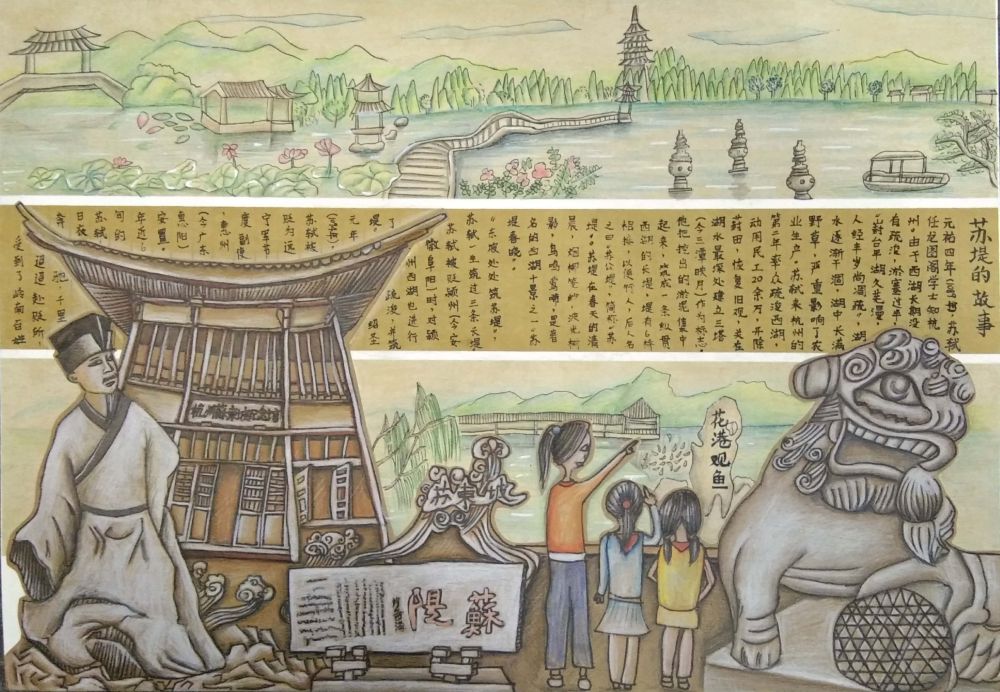 苏堤的故事
任龙图阁学士知杭
州。由于西湖长期没
有疏浚,淤塞过半,
"葑台平湖久芜漫,
人经丰岁尚凋疏",湖
水逐渐干涸,湖中长满
野草,严重影响了农
业生产。苏轼来杭州的
第二年率众疏浚西湖,
动用民工20余万,开除
葑田,恢复旧观,并在
湖水最深处建立三塔
(今三潭映月)作为标志。
他把挖出的淤泥集中
起来,筑成一条纵贯
西湖的长堤,堤有6桥
相接,以便行人,后人名
之曰"苏公堤",简称"苏
堤"。苏堤在春天的清
晨,烟柳笼纱,波光树
影,鸟鸣莺啼,是著
名的西湖十景之一"苏
堤春晓"。
"东坡处处筑苏堤",
苏轼一生筑过三条长堤。
苏轼被贬颍州(今安
徽阜阳)时,对颍
州西湖也进行
了 疏浚,并筑
堤。 绍圣
元年
苏轼被
贬为远
宁军节
度副使
,惠州
(今广东
惠阳)
安置。
年近六
旬的
苏轼
日夜
奔驰千里
赶赴贬所
受到了岭南百姓
杭州苏东坡纪念馆
苏东坡
蘇堤
花港观鱼